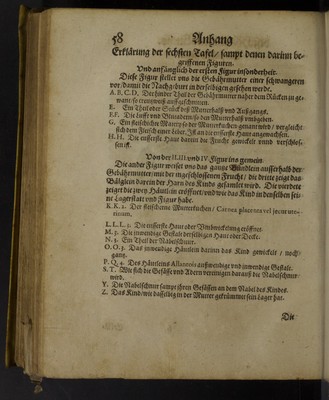 58 Anhang
Erklärung der sechsten Tafel / sampt denen darinn be-
griffenen Figuren.
Vnd anfänglich der ersten Figur insonderheit.
Diese Figur stellet vns die Gebährmutter einer schwangeren
vor / damit die Nachgeburt in derselbigen gesehen werde.
A. B. C. D. Der hinder Theil der Gebährmutter nahe dem Rücken zu ge-
want / so creutzweiß auffgeschnitten.
E. Ein Theil oder Stück deß Mutterhalß vnd Außgangs.
F.F. Die lufft vnd Blutadern / so den Mutterhalß vmbgeben.
G. Ein fleischichte Matery / so der Mutterkuchen genant wird / vergleicht
sich dem Fleisch einer Leber. Ist an die eusserste Haut angewachsen.
H. H. Die eusserste Haut darinn die Frucht gewickelt vnnd verschlos-
sen ist.
Von der II. III. vnd IV. Figur ins gemein.
Die ander Figur weiset vns das gantze Bündlein ausserhalb der
Gebährmutter / mit der eingeschlossenen Frucht / die dritte zeigt das
Bälglein darein der Harn des Kinds gesamlet wird. Die vierdte
zeiget die zwey Häutlin eröffnet / vnd wie das Kind in denselben sei-
ne Lagerstatt vnd Figur habe.
K. K. 2. Der fleischichte Mutterkuchen / Carnea placenta vel jecur ute-
rinum.
L. L. L. 2. Die eusserste Haut oder Vmbwickelung eröffnet.
M. 3. Die inwendige Gestalt derselbigen Haut oder Decke.
N. 4. Ein Theil der Nabelschnur.
O. O. 3. Das inwendige Häutlein darinn das Kind gewickelt / noch
gantz.
P. Q. 4. Des Häutleins Allantois außwendige vnd inwendige Gestalt.
S. T. Wie sich die Gefässe vnd Adern vereinigen darauß die Nabelschnur
wird.
Y. Die Nabelschnur sampt ihren Gefässen an dem Nabel des Kindes.
Z. Das Kind / wie dasselbig in der Mutter gekrümmet sein Lager hat.
Die